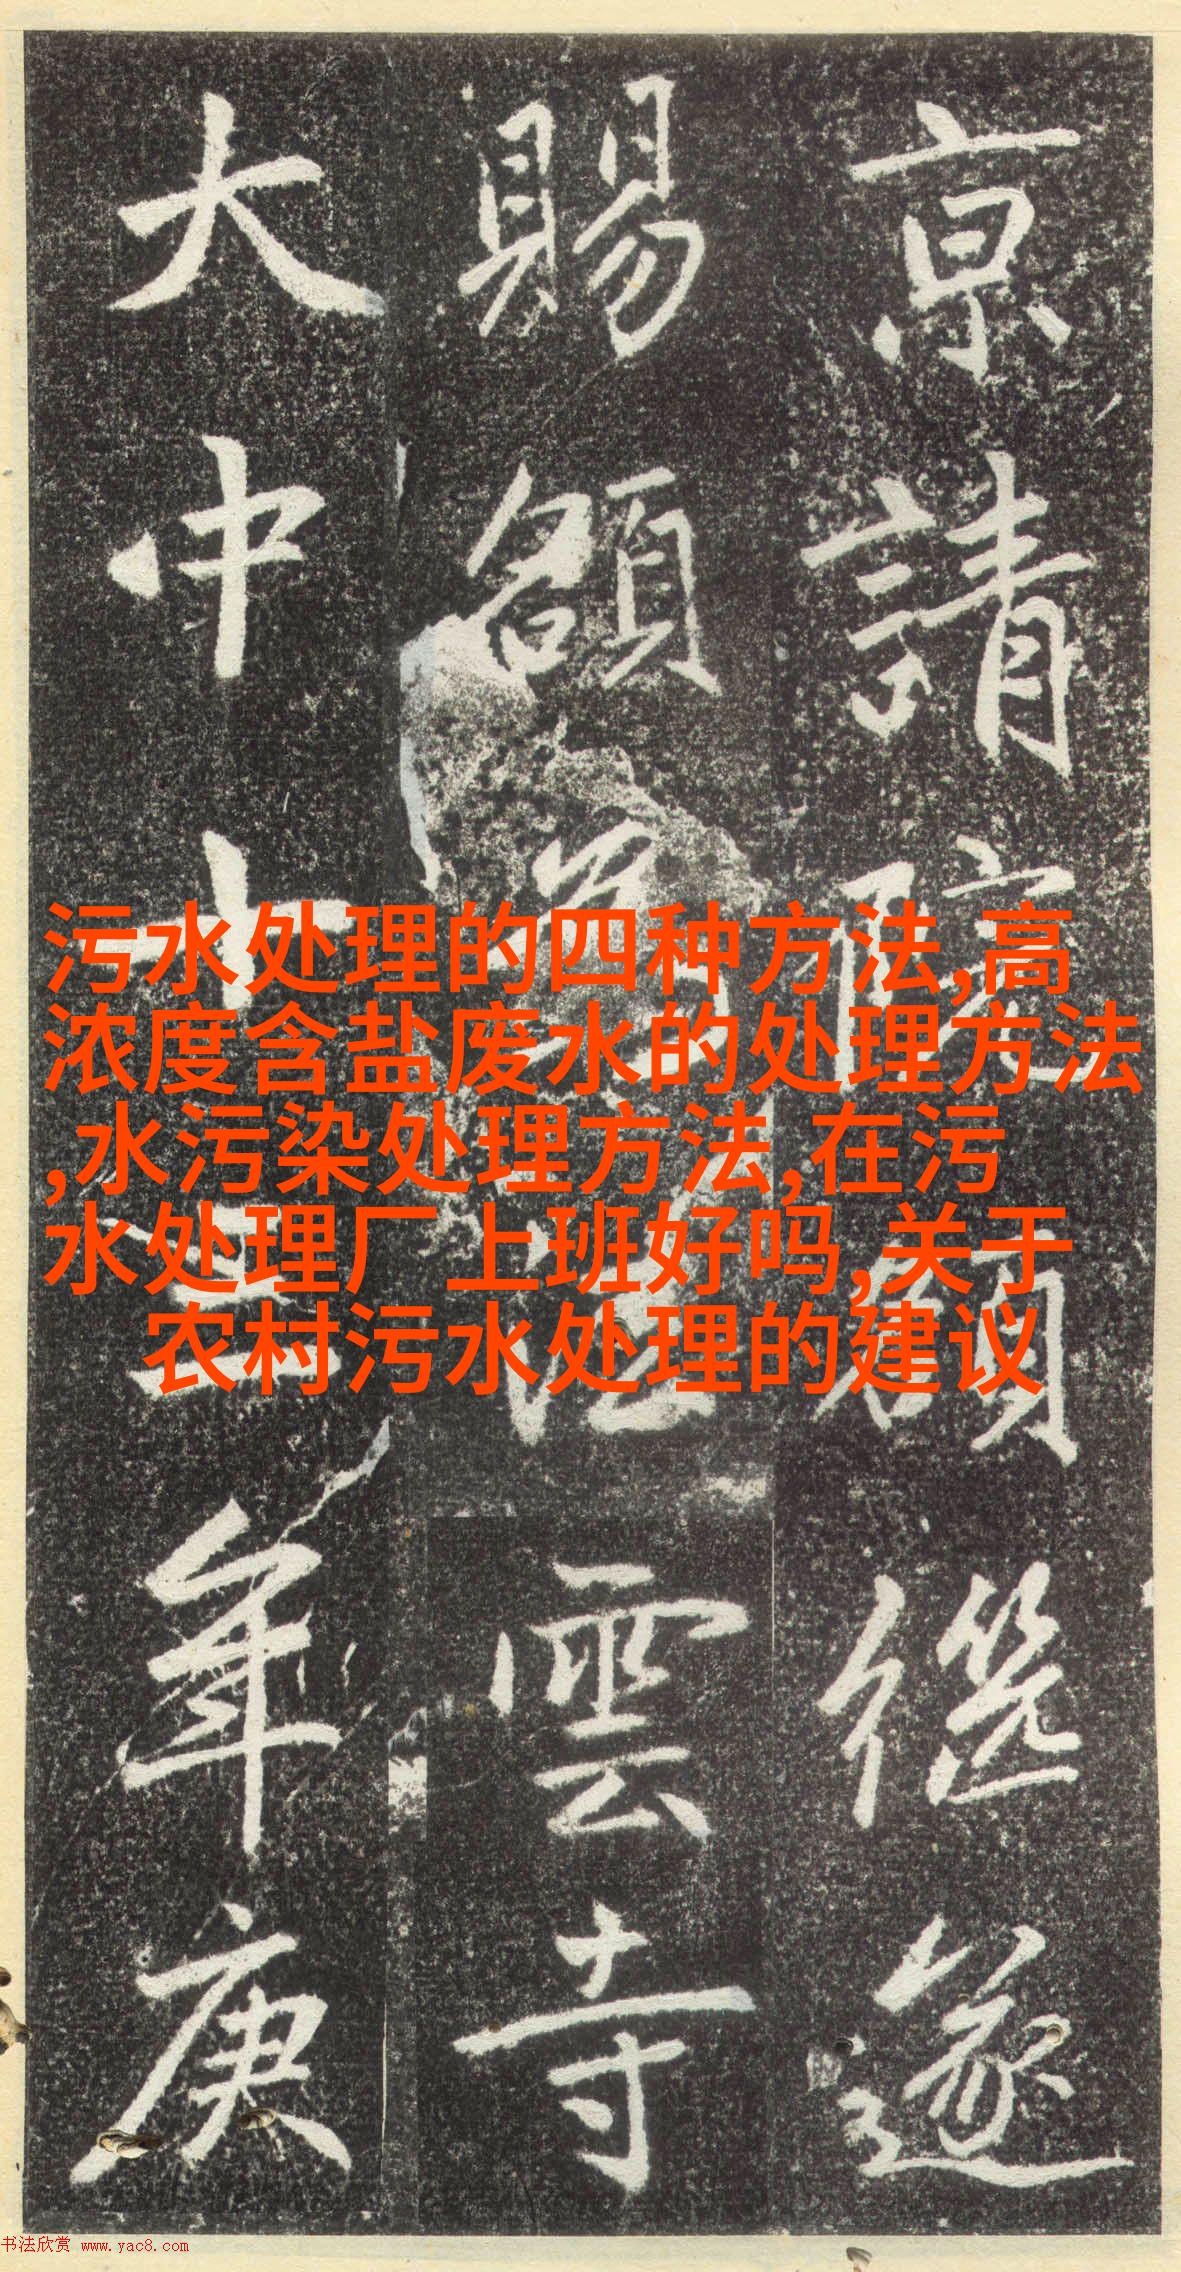 京請院額遂
賜額法雲寺
大中十三年庚
污水处理的四种方法,高
浓度含盐废水的处理方法
,水污染处理方法,在污
水处理厂上班好吗,关于
农村污水处理的建议
书法欣赏 www.yac8.com